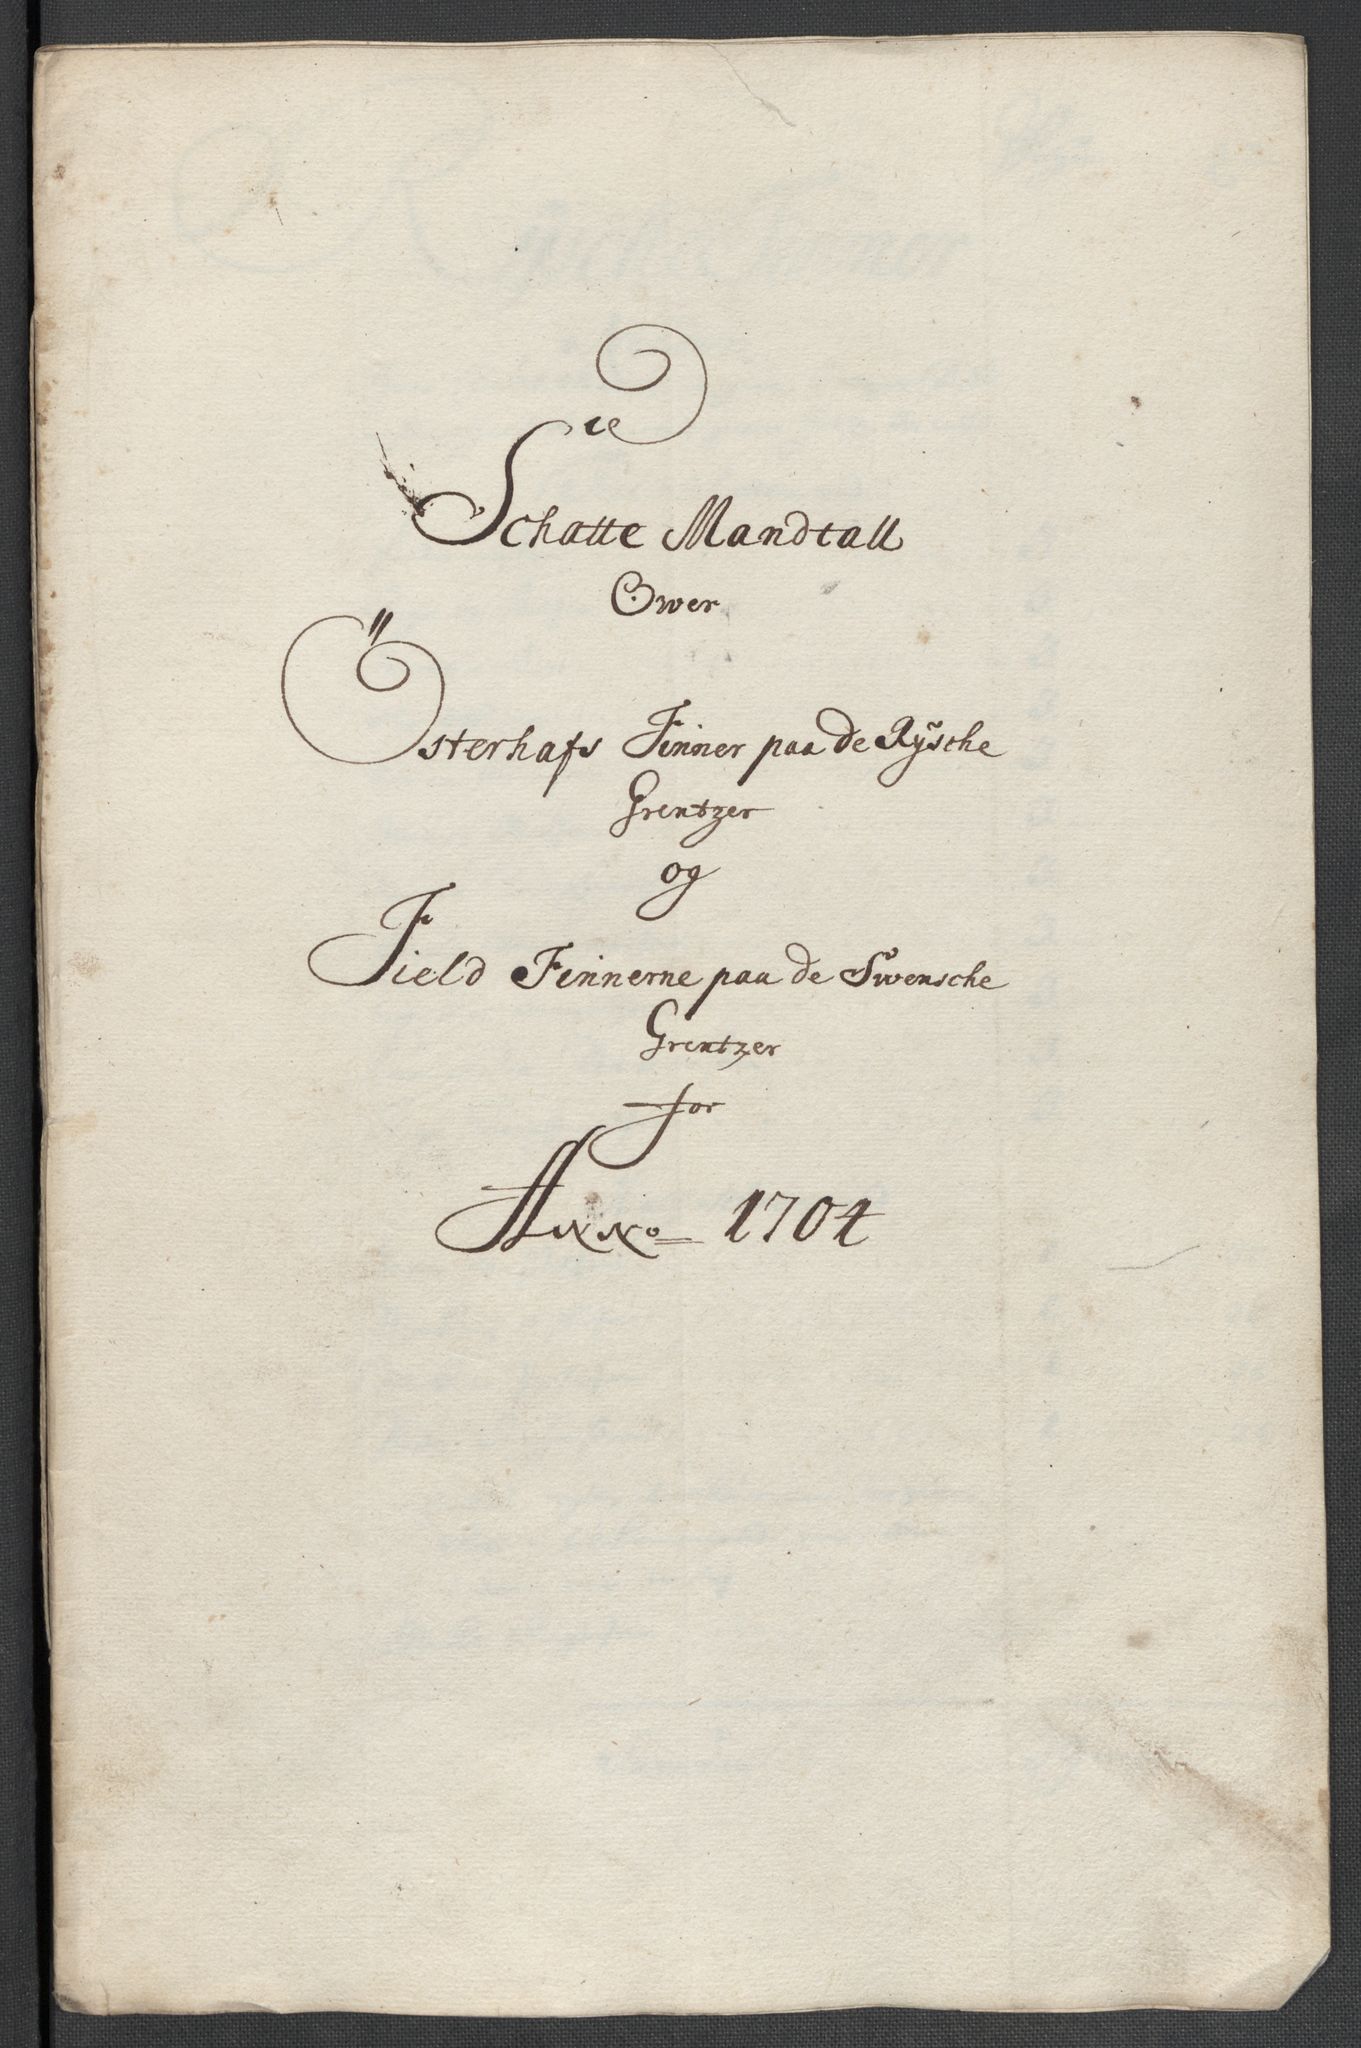 Schatte Mandtall
Ower
Österhafs Finner paa de Rÿsche
Grentzer
og
Field Finnerne paa de Swensche
Grentzer
for
Anno 1704